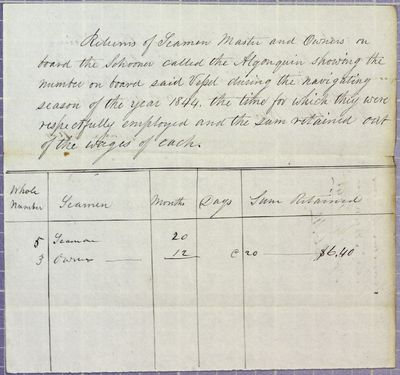 Returns of Seamen Master and Owners on
board the Schooner called the Algonquin showing the
number on board said Vessel during the navigating
season of the year 1844. the time for which they were
respectfully employed and the sum retained out
of the wages of each.
Whole Number Seamen Months Days Sum Retained
5 Seaman 20
3 Owner 12 c 20 $6.40